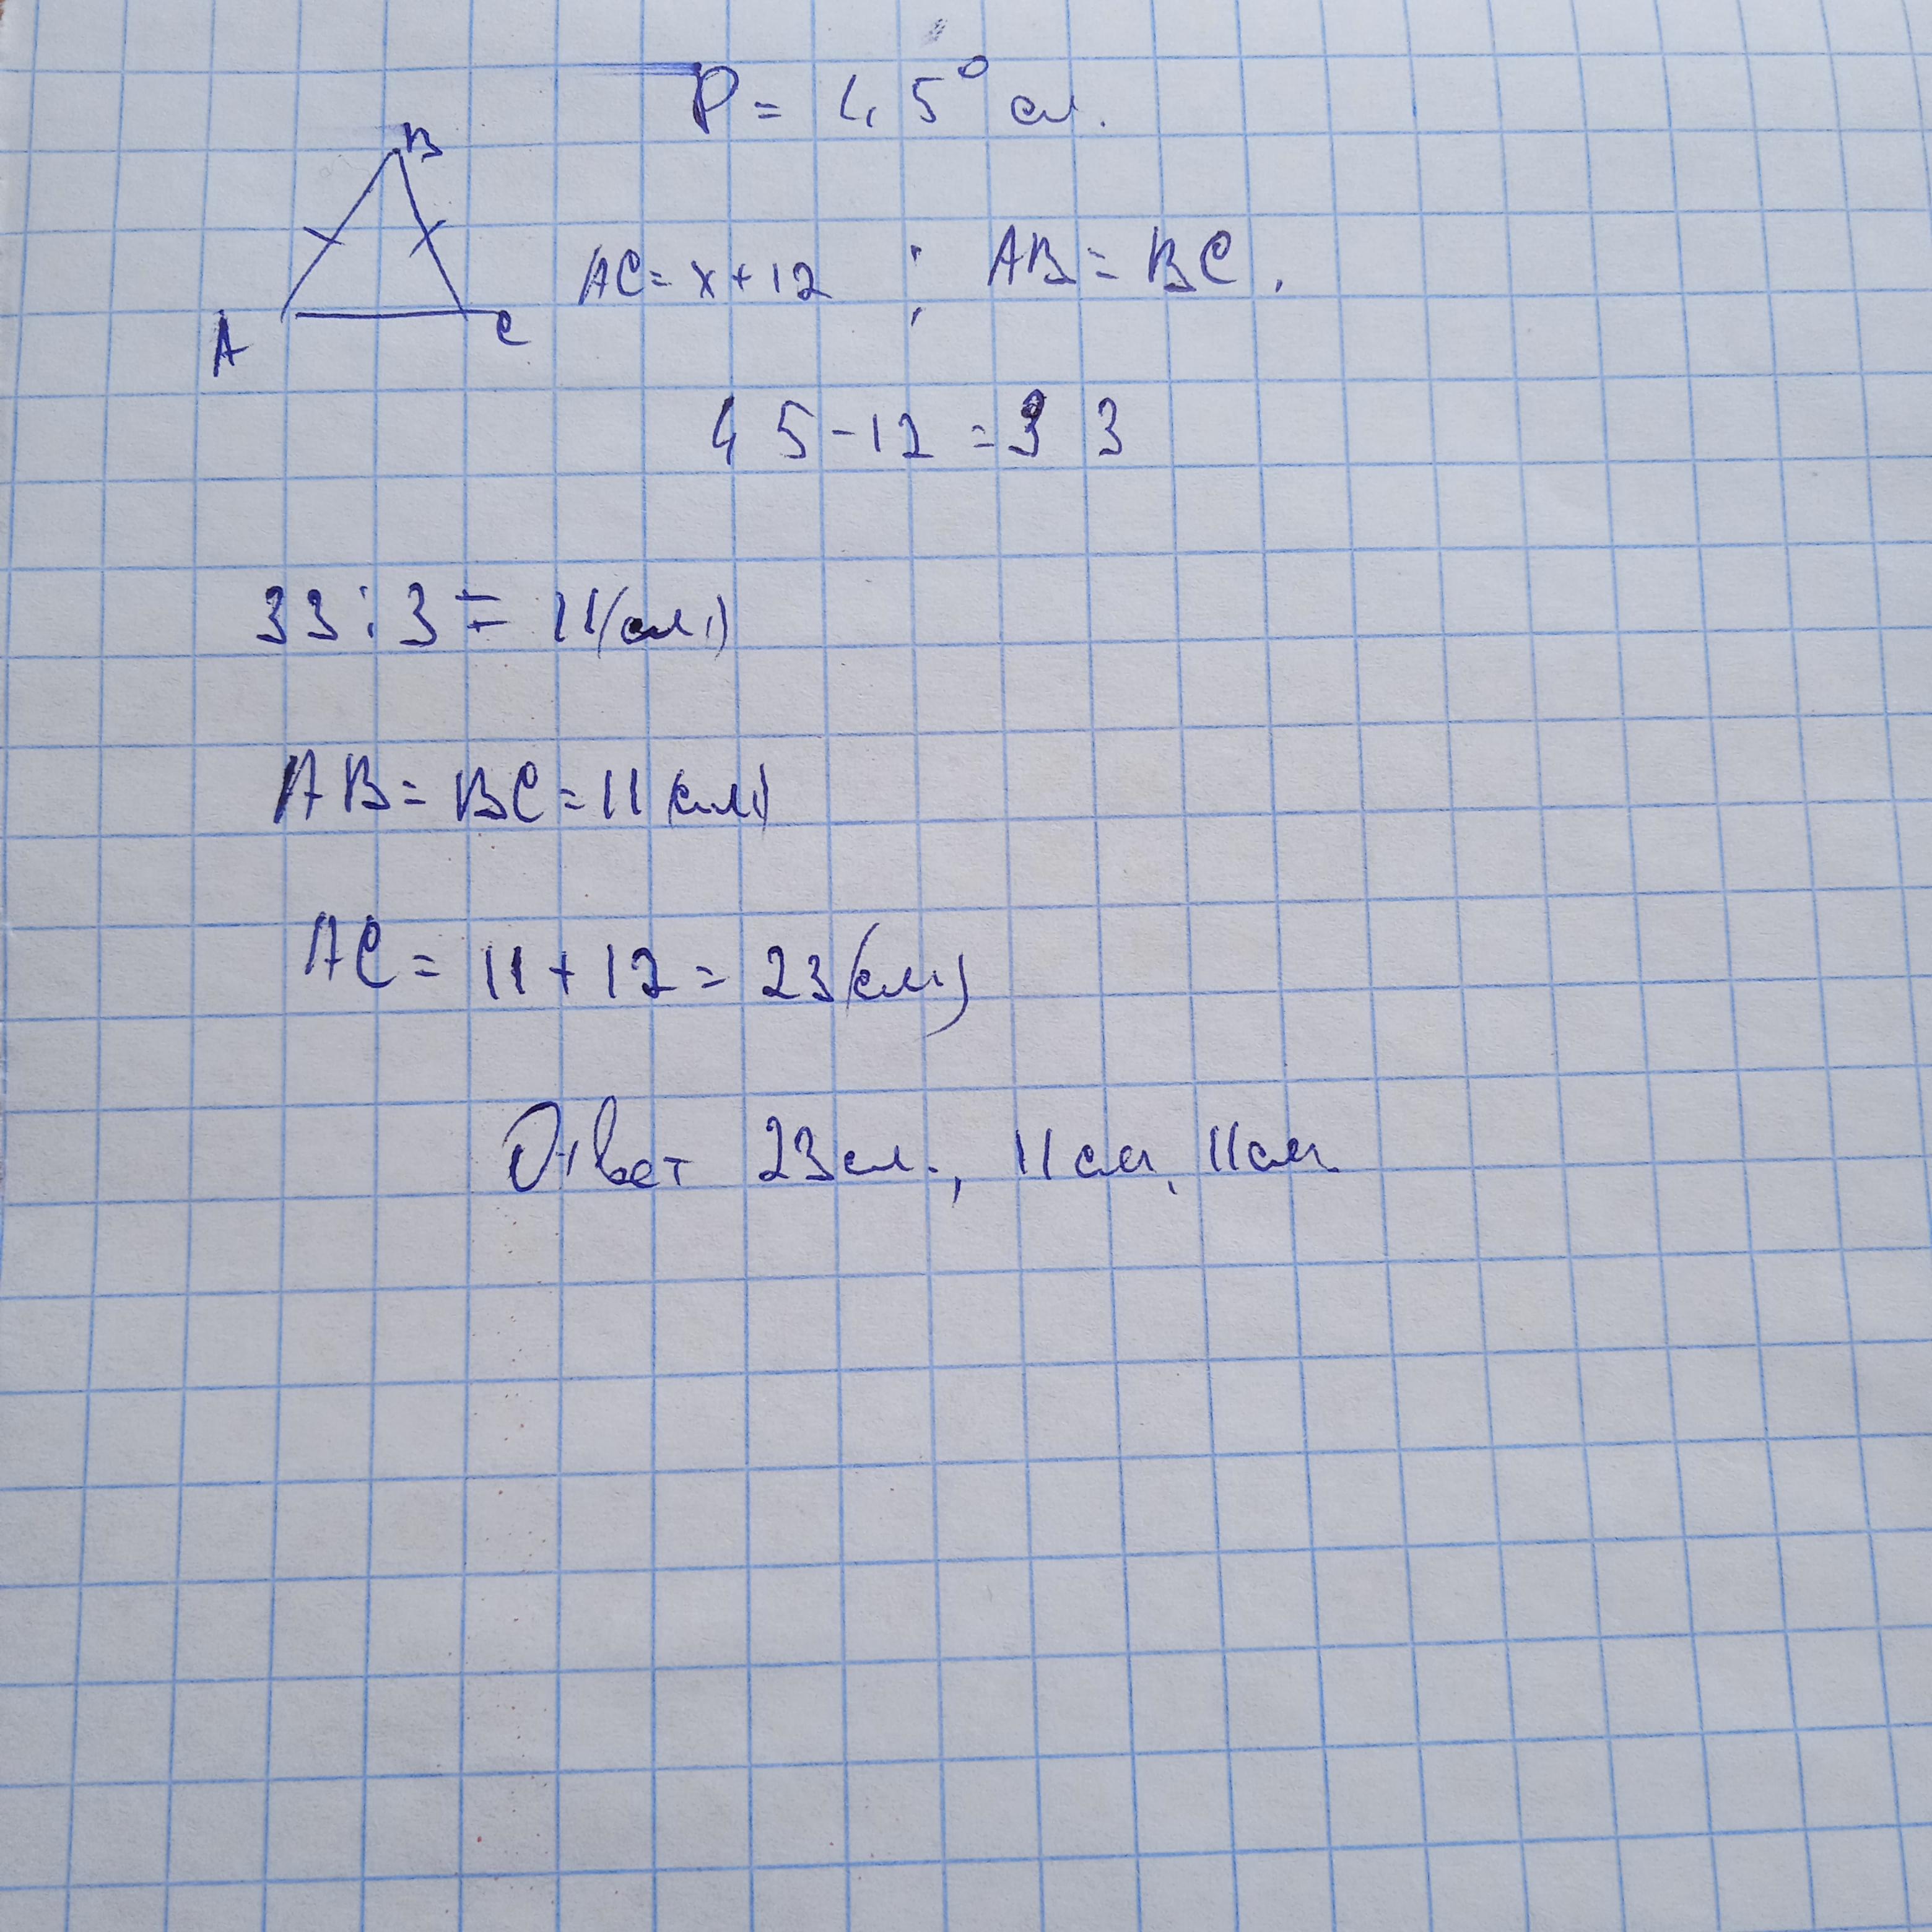 P = 45° см.
B
AC = x + 12 ; AB = BC.
A C
45 - 12 = 33
33 : 3 = 11 (см.)
AB = BC = 11 (см.)
AC = 11 + 12 = 23 (см.)
Ответ 23 см., 11 см, 11 см.